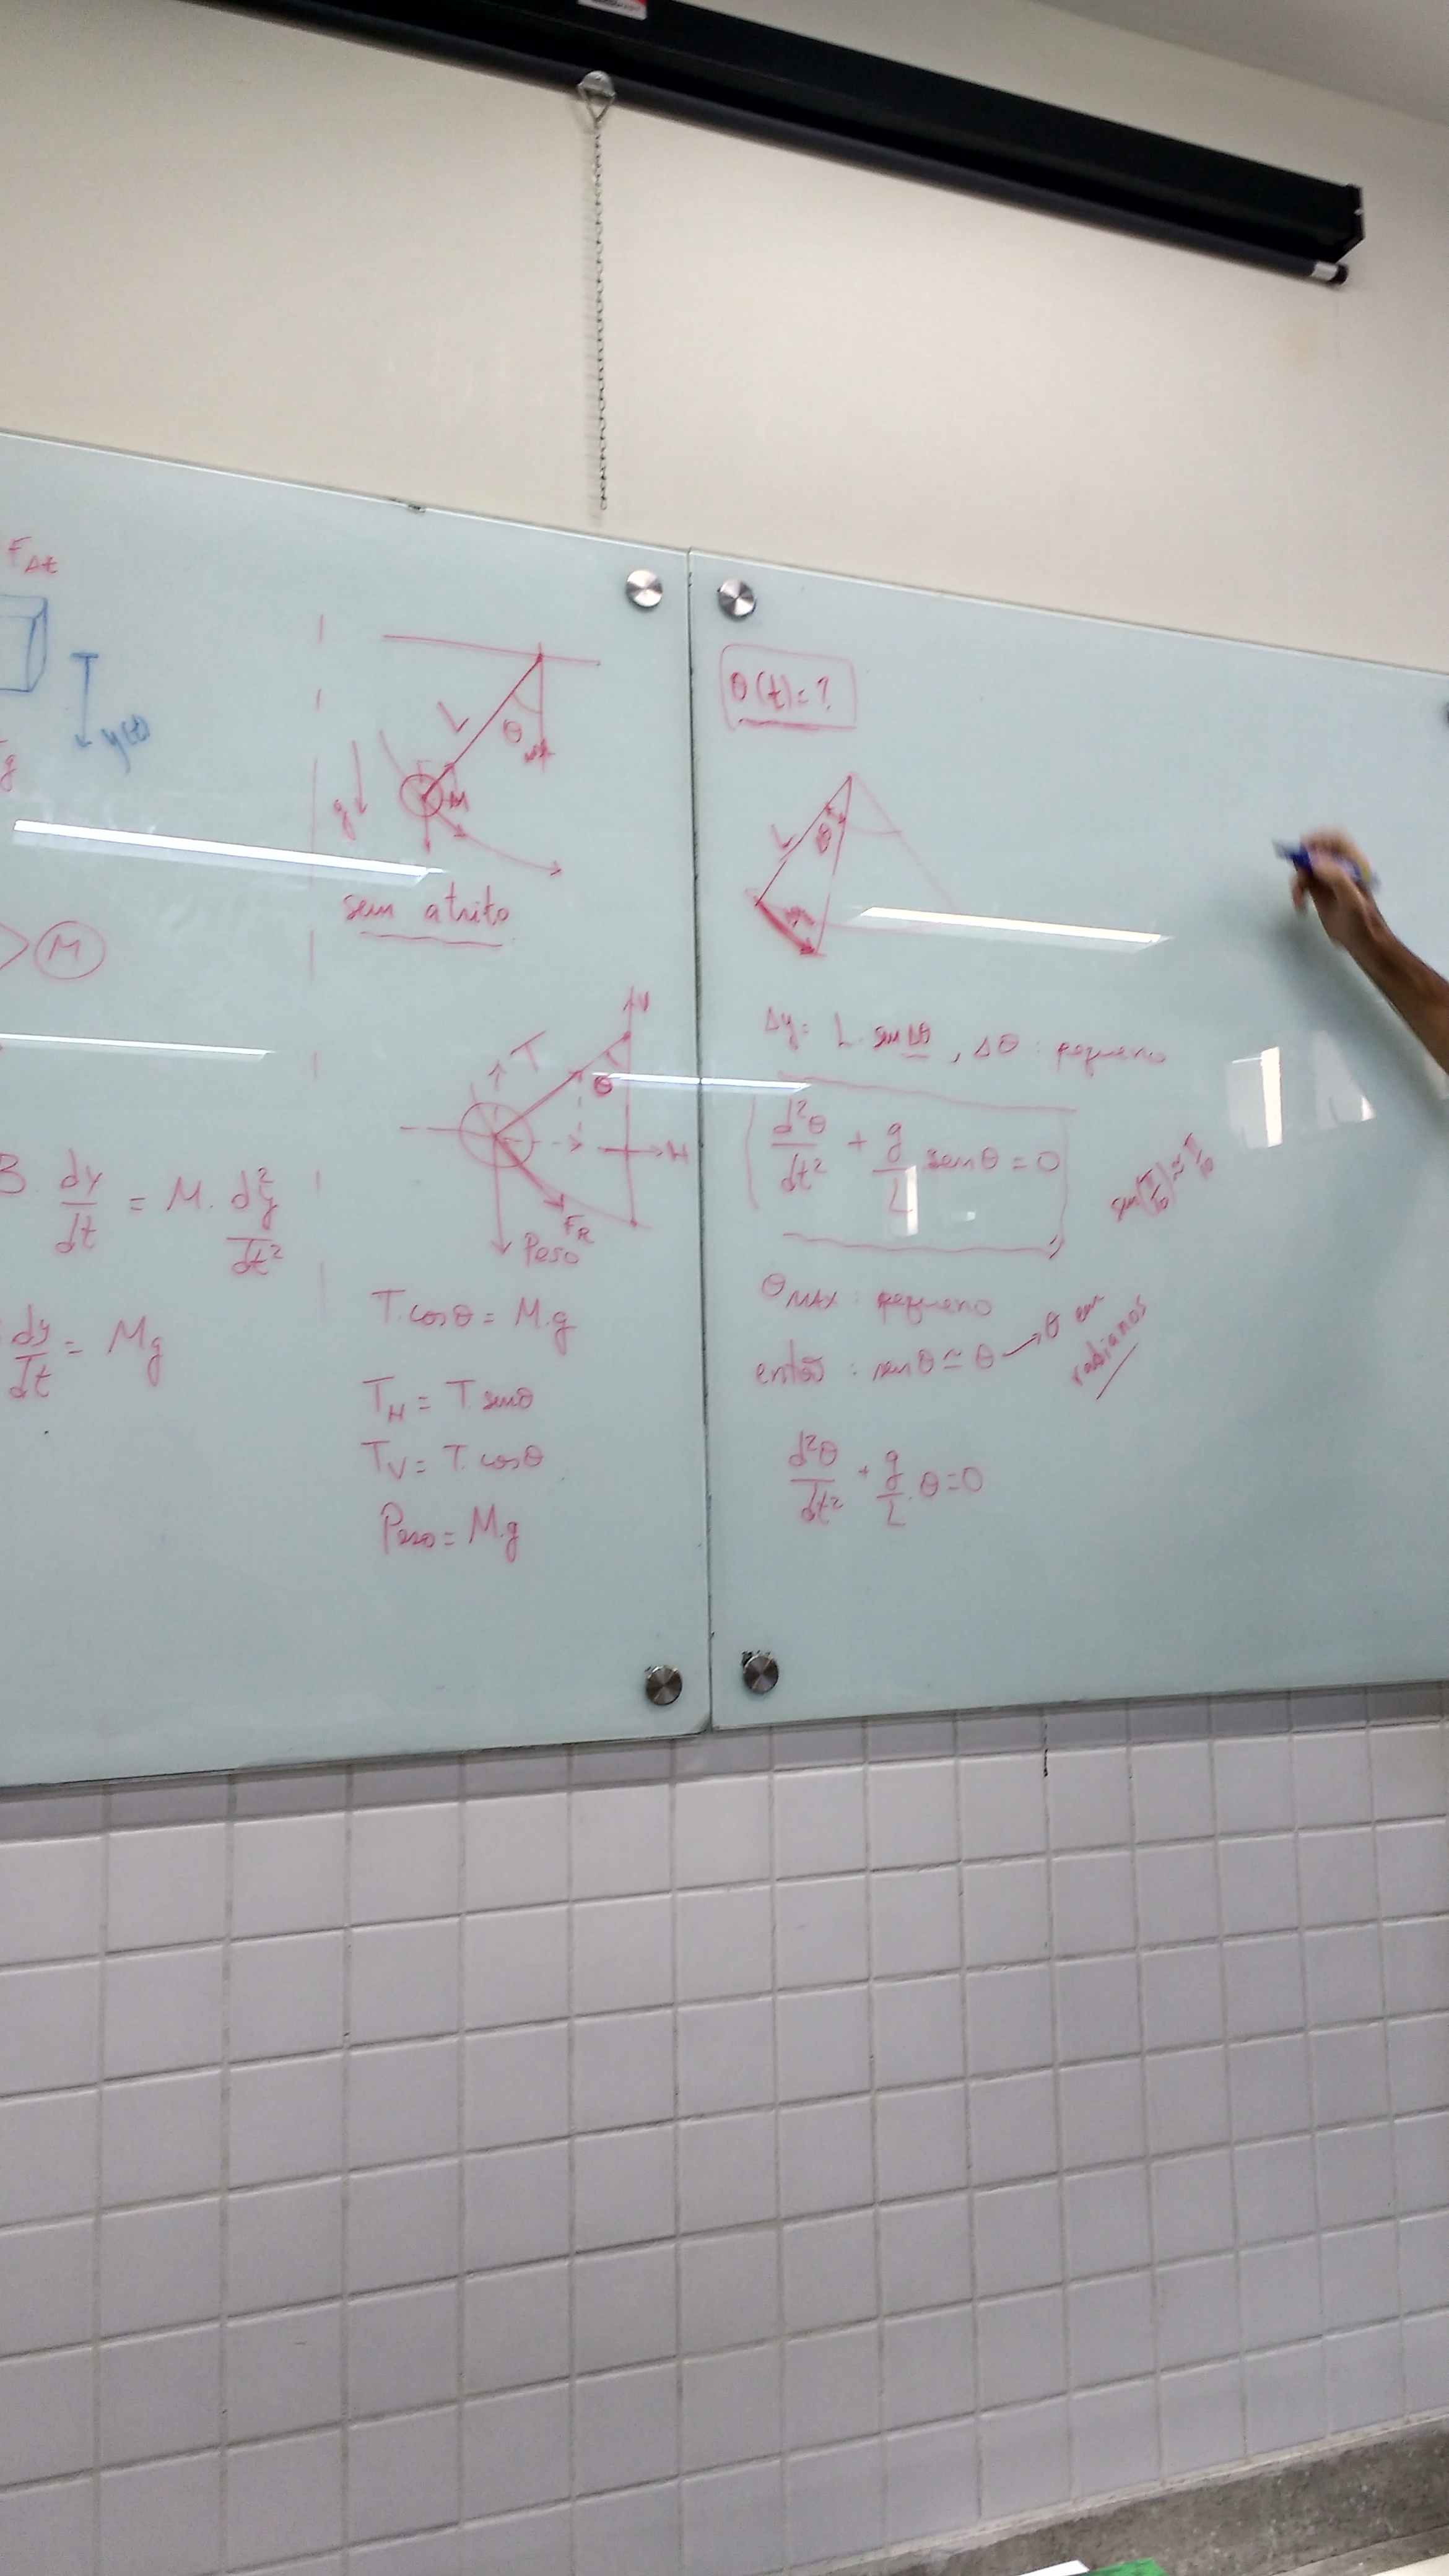 F_Δt
y(t)
g
M
B. dy/dt = M. d²y/dt²
dy/dt = Mg
L
θ
g
M
sem atrito
V
T
θ
H
F_R
Peso
T.cosθ = M.g
T_H = T.senθ
T_V = T.cosθ
Peso = M.g
θ(t)=?
L
θ
Δy = L.sen Δθ , Δθ : pequeno
d²θ/dt² + g/L senθ = 0
sen(π/10) ≃ π/10
θ_MAX : pequeno
então : senθ ≃ θ → θ em
radianos
d²θ/dt² + g/L . θ = 0